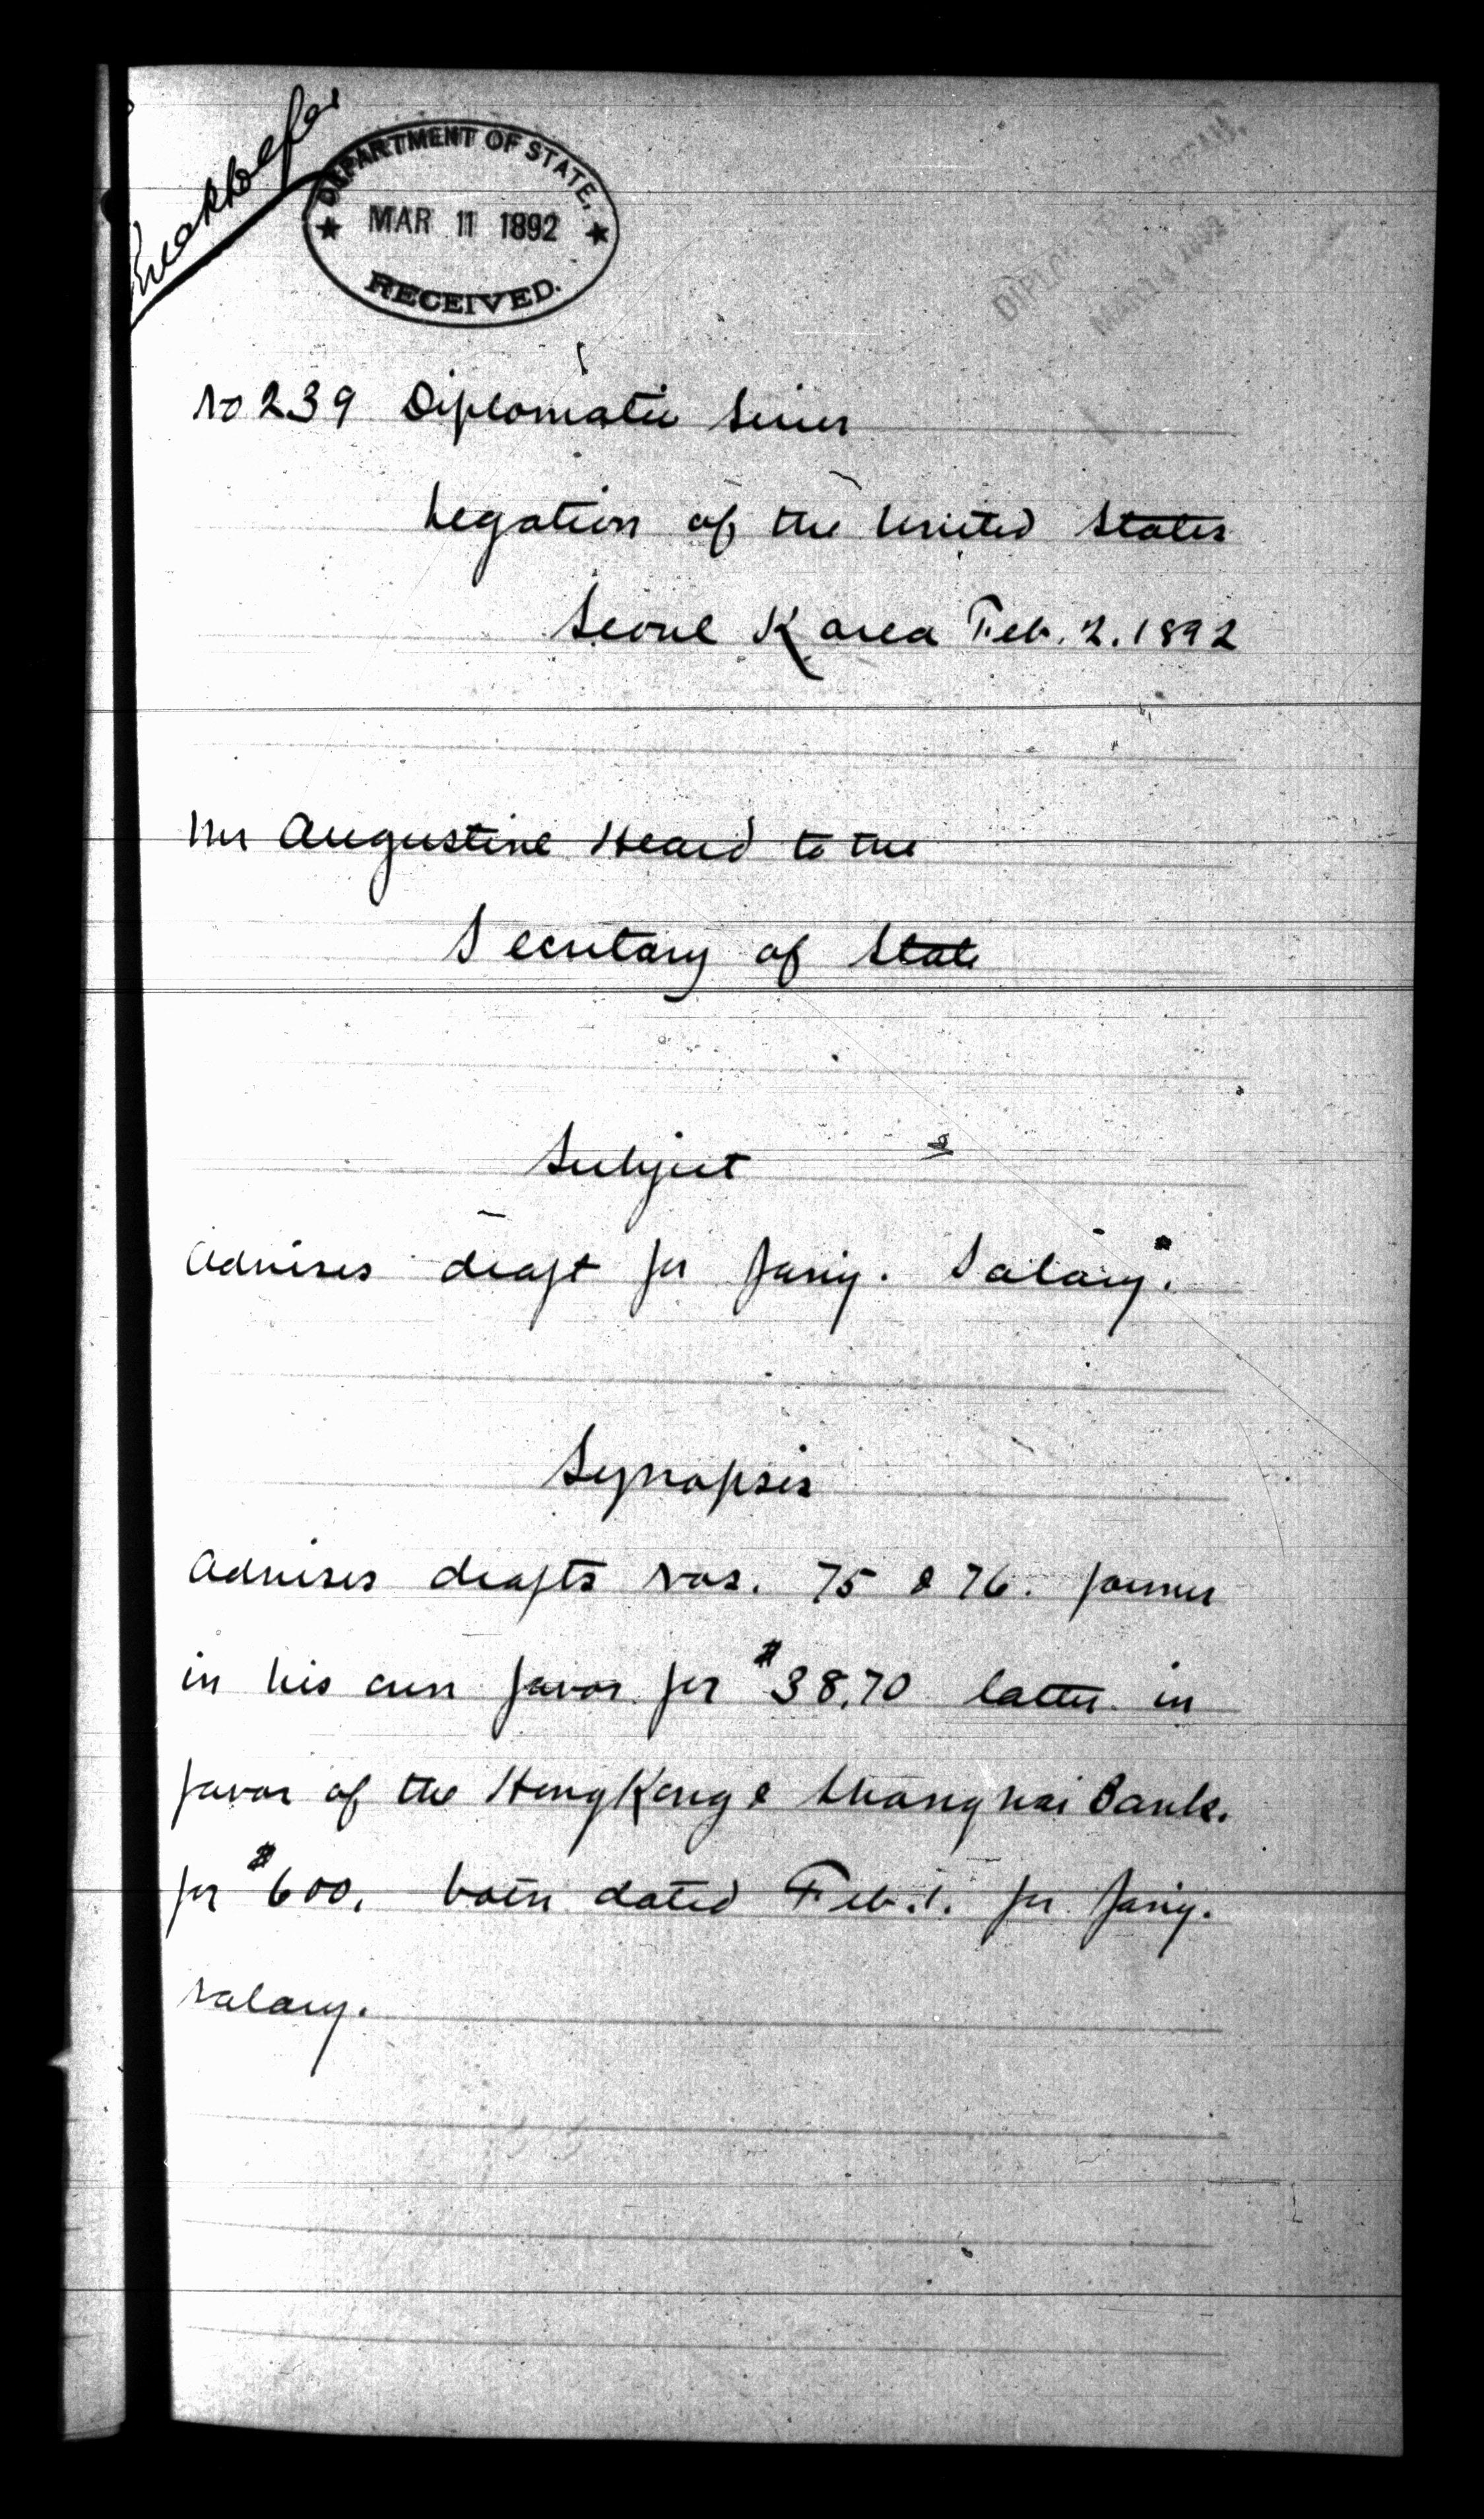 DEPARTMENT OF STATE,
MAR 11 1892
RECEIVED.
MAR 14 1892
No 239 Diplomatic Series
Legation of the United States
Seoul Korea Feb. 2. 1892
Mr Augustine Heard to the
Secretary of State
Subject
Advises draft for Jany. Salary.
Synopsis
Advises drafts Nos. 75 & 76. former
in his own favor for $38.70 latter in
favor of the HongKong & Shanghai Bank.
for $600. both dated Feb. 1. for Jany.
salary.